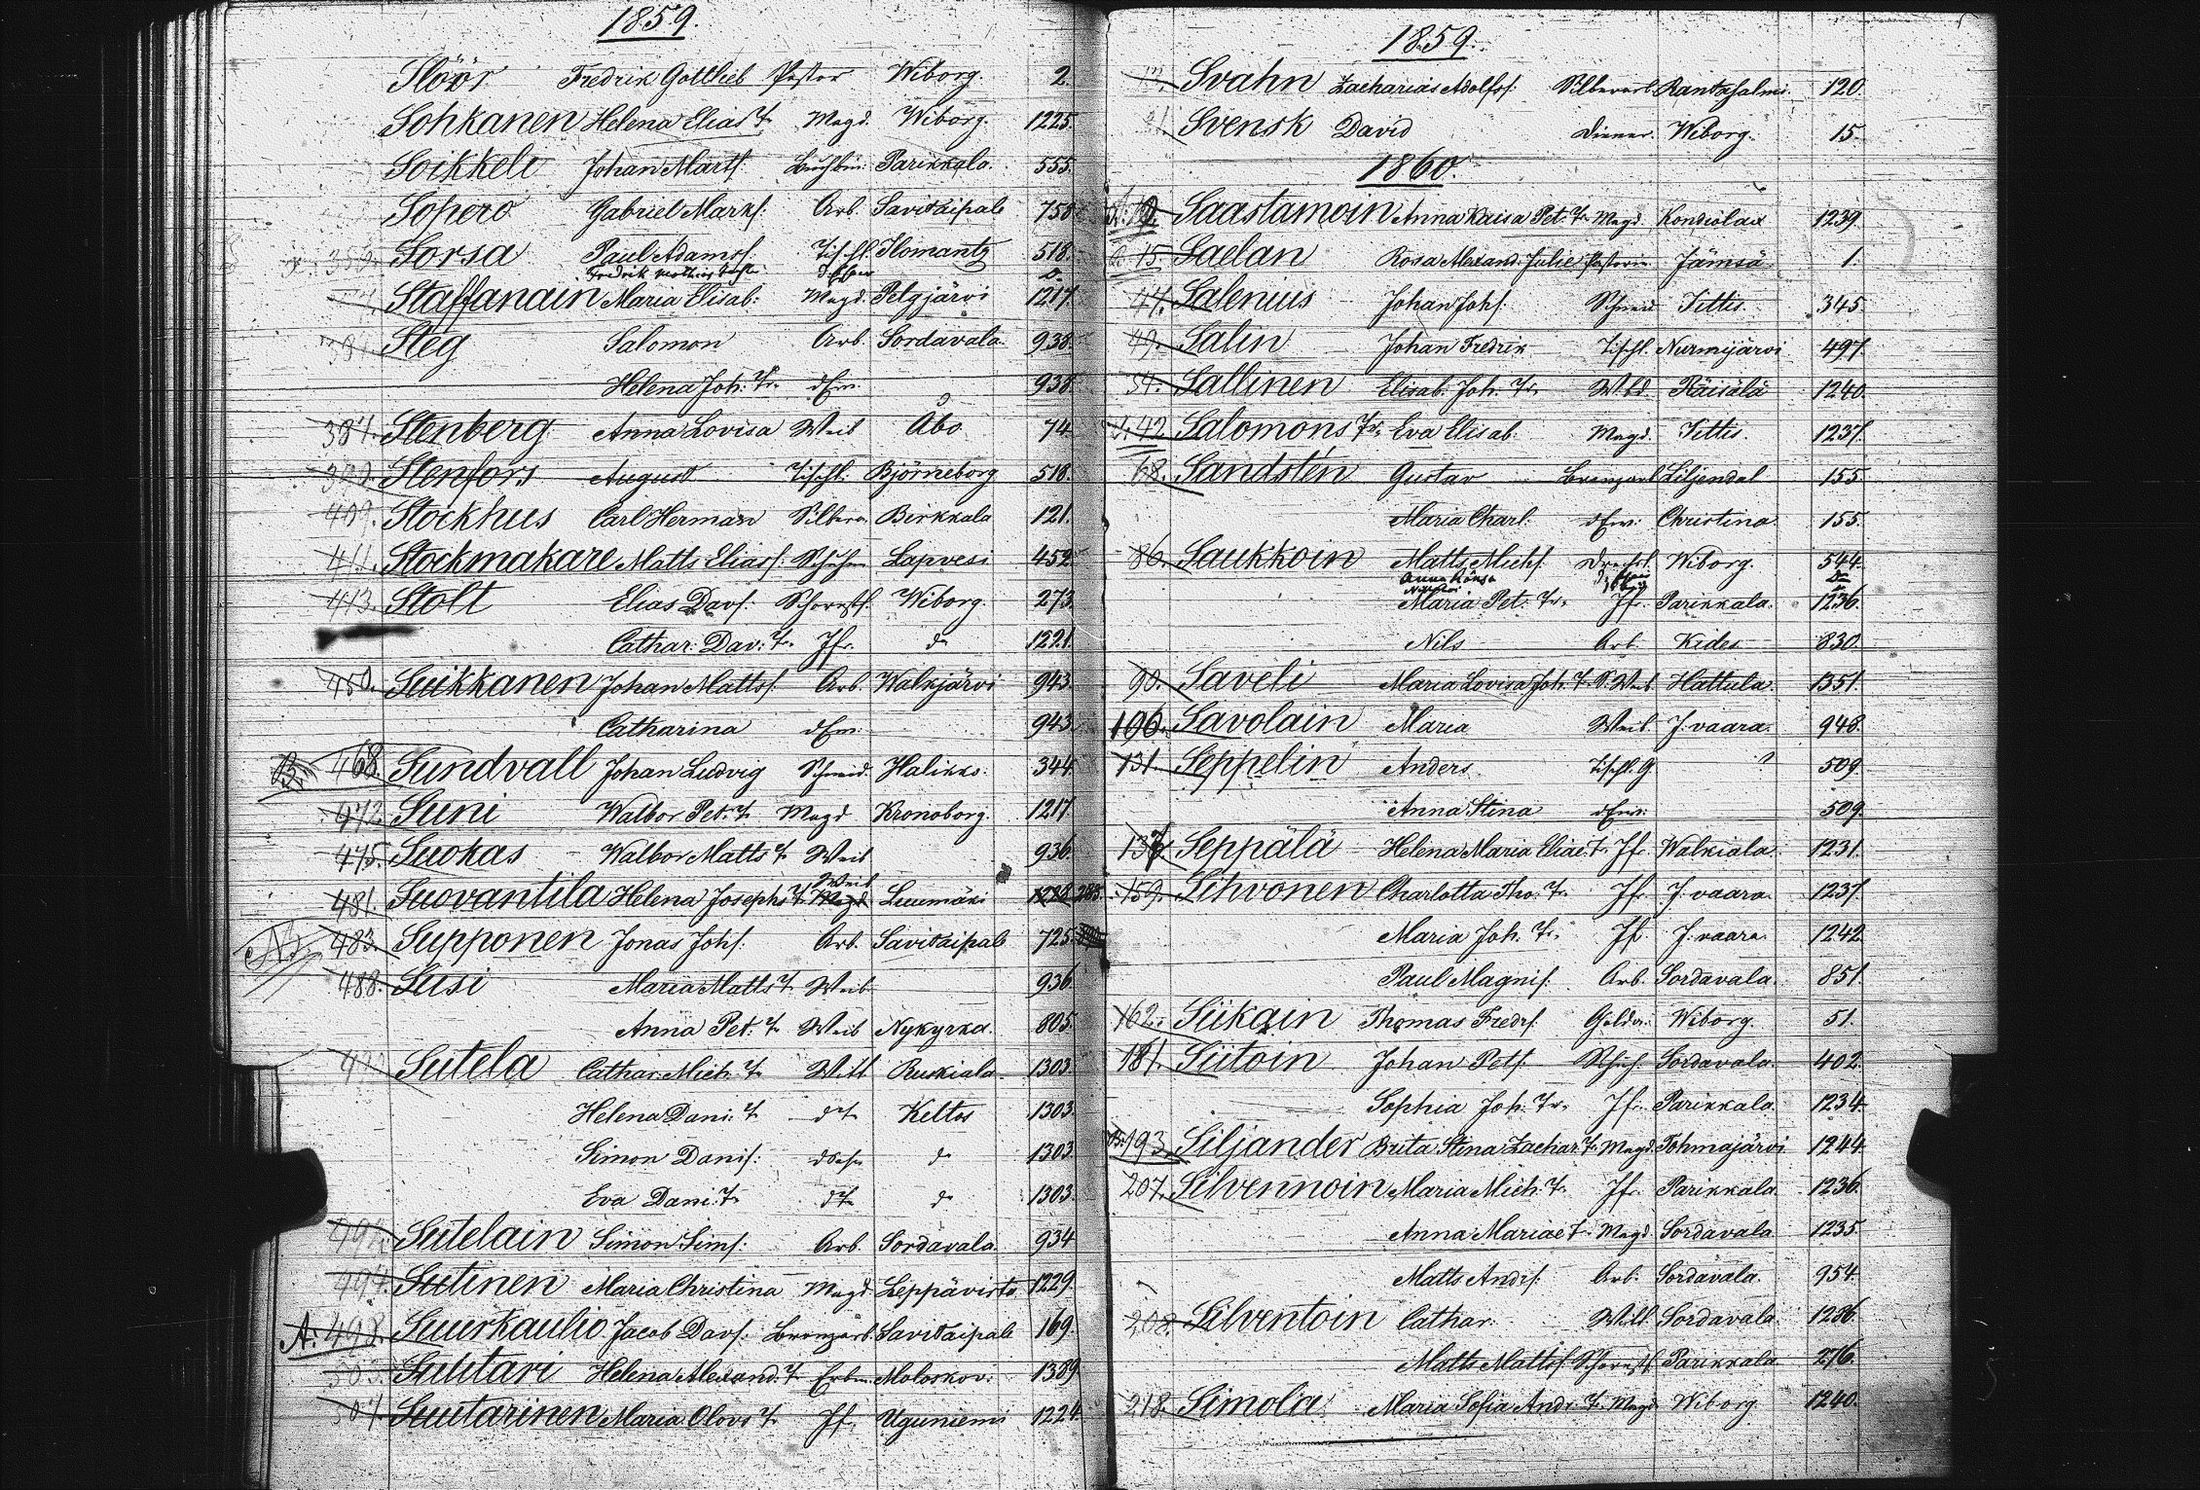 1859.
Slöör Fredrik Gottlieb Pastor Wiborg. 2.
Sohkanen Helena Elias T. Magd. Wiborg. 1225.
Soikkeli Johan Martf. Buchbin: Parikkala. 555.
Sopero Gabriel Markf. Arb. Savitaipale 758
Sorsa Paul Adamsf. Tischl. Ilomantz 518.
Staffanain Maria Elisab: Magd. Pelgjärvi 1217.
Steg Salomon Arb. Sordavala. 938.
Helena Joh. Tr. dEw. 938
387. Stenberg Anna Lovisa Weib Åbo 74
Stenfors August Tischl. Björneborg 518.
409. Stockhus Carl Herman Silbera. Birkkala 121.
411. Stockmakare Matts Eliasf. Schuhm Lapvesi 452
413 Stolt Elias Davf. Schornstf. Wiborg. 273.
Cathar. Dav. T. Jfr. do 1221.
450. Suikkanen Johan Mattsf. Arb. Walkjärvi 943.
Catharina dEw. 943.
468. Sundvall Johan Ludvig Schneid. Halikko. 344.
472. Suni Walbor Pet. T. Magd Kronoborg. 1217.
475. Suokas Walbor Matts T. Weib 936.
Weib
481. Suovantila Helena Josephs T. Magd Luumäki 1228 288.
NB. 483. Supponen Jonas Johf. Arb. Savitaipale 725
488. Susi Maria Matts T. Weib 936.
Anna Pet. T. Weib Nykyrka. 805.
Sutela Cathar. Mich. T. Witt Ruskiala. 1303.
Helena Dani. T. dT. Keltos 1303.
Simon Danif. do 1303.
Eva Dani. T. dT. do 1303.
Sutelain Simon Simf. Arb. Sordavala. 934
494. Sutinen Maria Christina Magd. Leppävirta 1229.
A. 498. Suurkaulio Jacob Davf. Bronzarb. Savitaipale 169.
503. Suutari Helena Alexand. T. Erbm. Moloskov. 1389
507. Suutarinen Maria Olovs T. Jf. Uguniemi 1224.
1859.
Svahn Zacharias Adolff. Silberarb. Rantasalmi. 120.
Svensk David Diener. Wiborg. 15.
1860.
Saastamoin Anna Kaisa Pet. Tr. Magd Kondiolax 1239.
15. Saelan Rosa Alexand. Julie Pastorin Jämsä 1.
47. Salenius Johan Johf. Schneid Tettis. 345.
49. Salin Johan Fredrik Tischl. Nurmijärvi 497.
54. Sallinen Elisab. Joh. Tr. Wbd. Räisälä 1240.
42. Salomons Tr. Eva Elisab. Magd. Tettis. 1237.
68. Sandstén Gustav Bronzarb Liljendal 155.
Maria Charl. dEw: Christina 155.
86. Saukkoin Matts Michf. Drechsl. Wiborg. 544.
Maria Pet. Tr. Jfr. Parikkala. 1236.
Nils Arb. Kides 830.
90. Saveli Maria Lovisa Joh. T. S. Weib. Hattula. 1351.
106. Savolain Maria Weib. J. vaara. 948.
131. Seppelin Anders Tischl. G. ? 509
Anna Stina dEw: 509.
137. Seppälä Helena Maria Eliæ. T. Jf. Walkiala. 1231.
159. Sihvonen Charlotta Tho. T. Jfr J. vaara. 1237.
Maria Joh. Tr. Jf. J. vaara. 1242.
Paul Magnif. Arb. Sordavala. 851.
162. Siikain Thomas Fredrf. Golda. Wiborg. 51.
181. Siitoin Johan Petf. Schuh. Sordavala. 402.
Sophia Joh. Tr. Jfr. Parikkala. 1234.
193. Siljander Brita Stina Zachar. T. Magd. Tohmajärvi 1244.
207. Silvennoin Maria Mich. T. Jfr. Parikkala. 1236.
Anna Mariae T. Magd. Sordavala 1235.
Matts Andrf. Arb. Sordavala. 954.
208. Silventoin Cathar. Witt. Sordavala. 1236.
Matts Mattsf. Schornstf. Parikkala. 276.
218. Simola Maria Sofia Andr. T. Magd Wiborg. 1240.